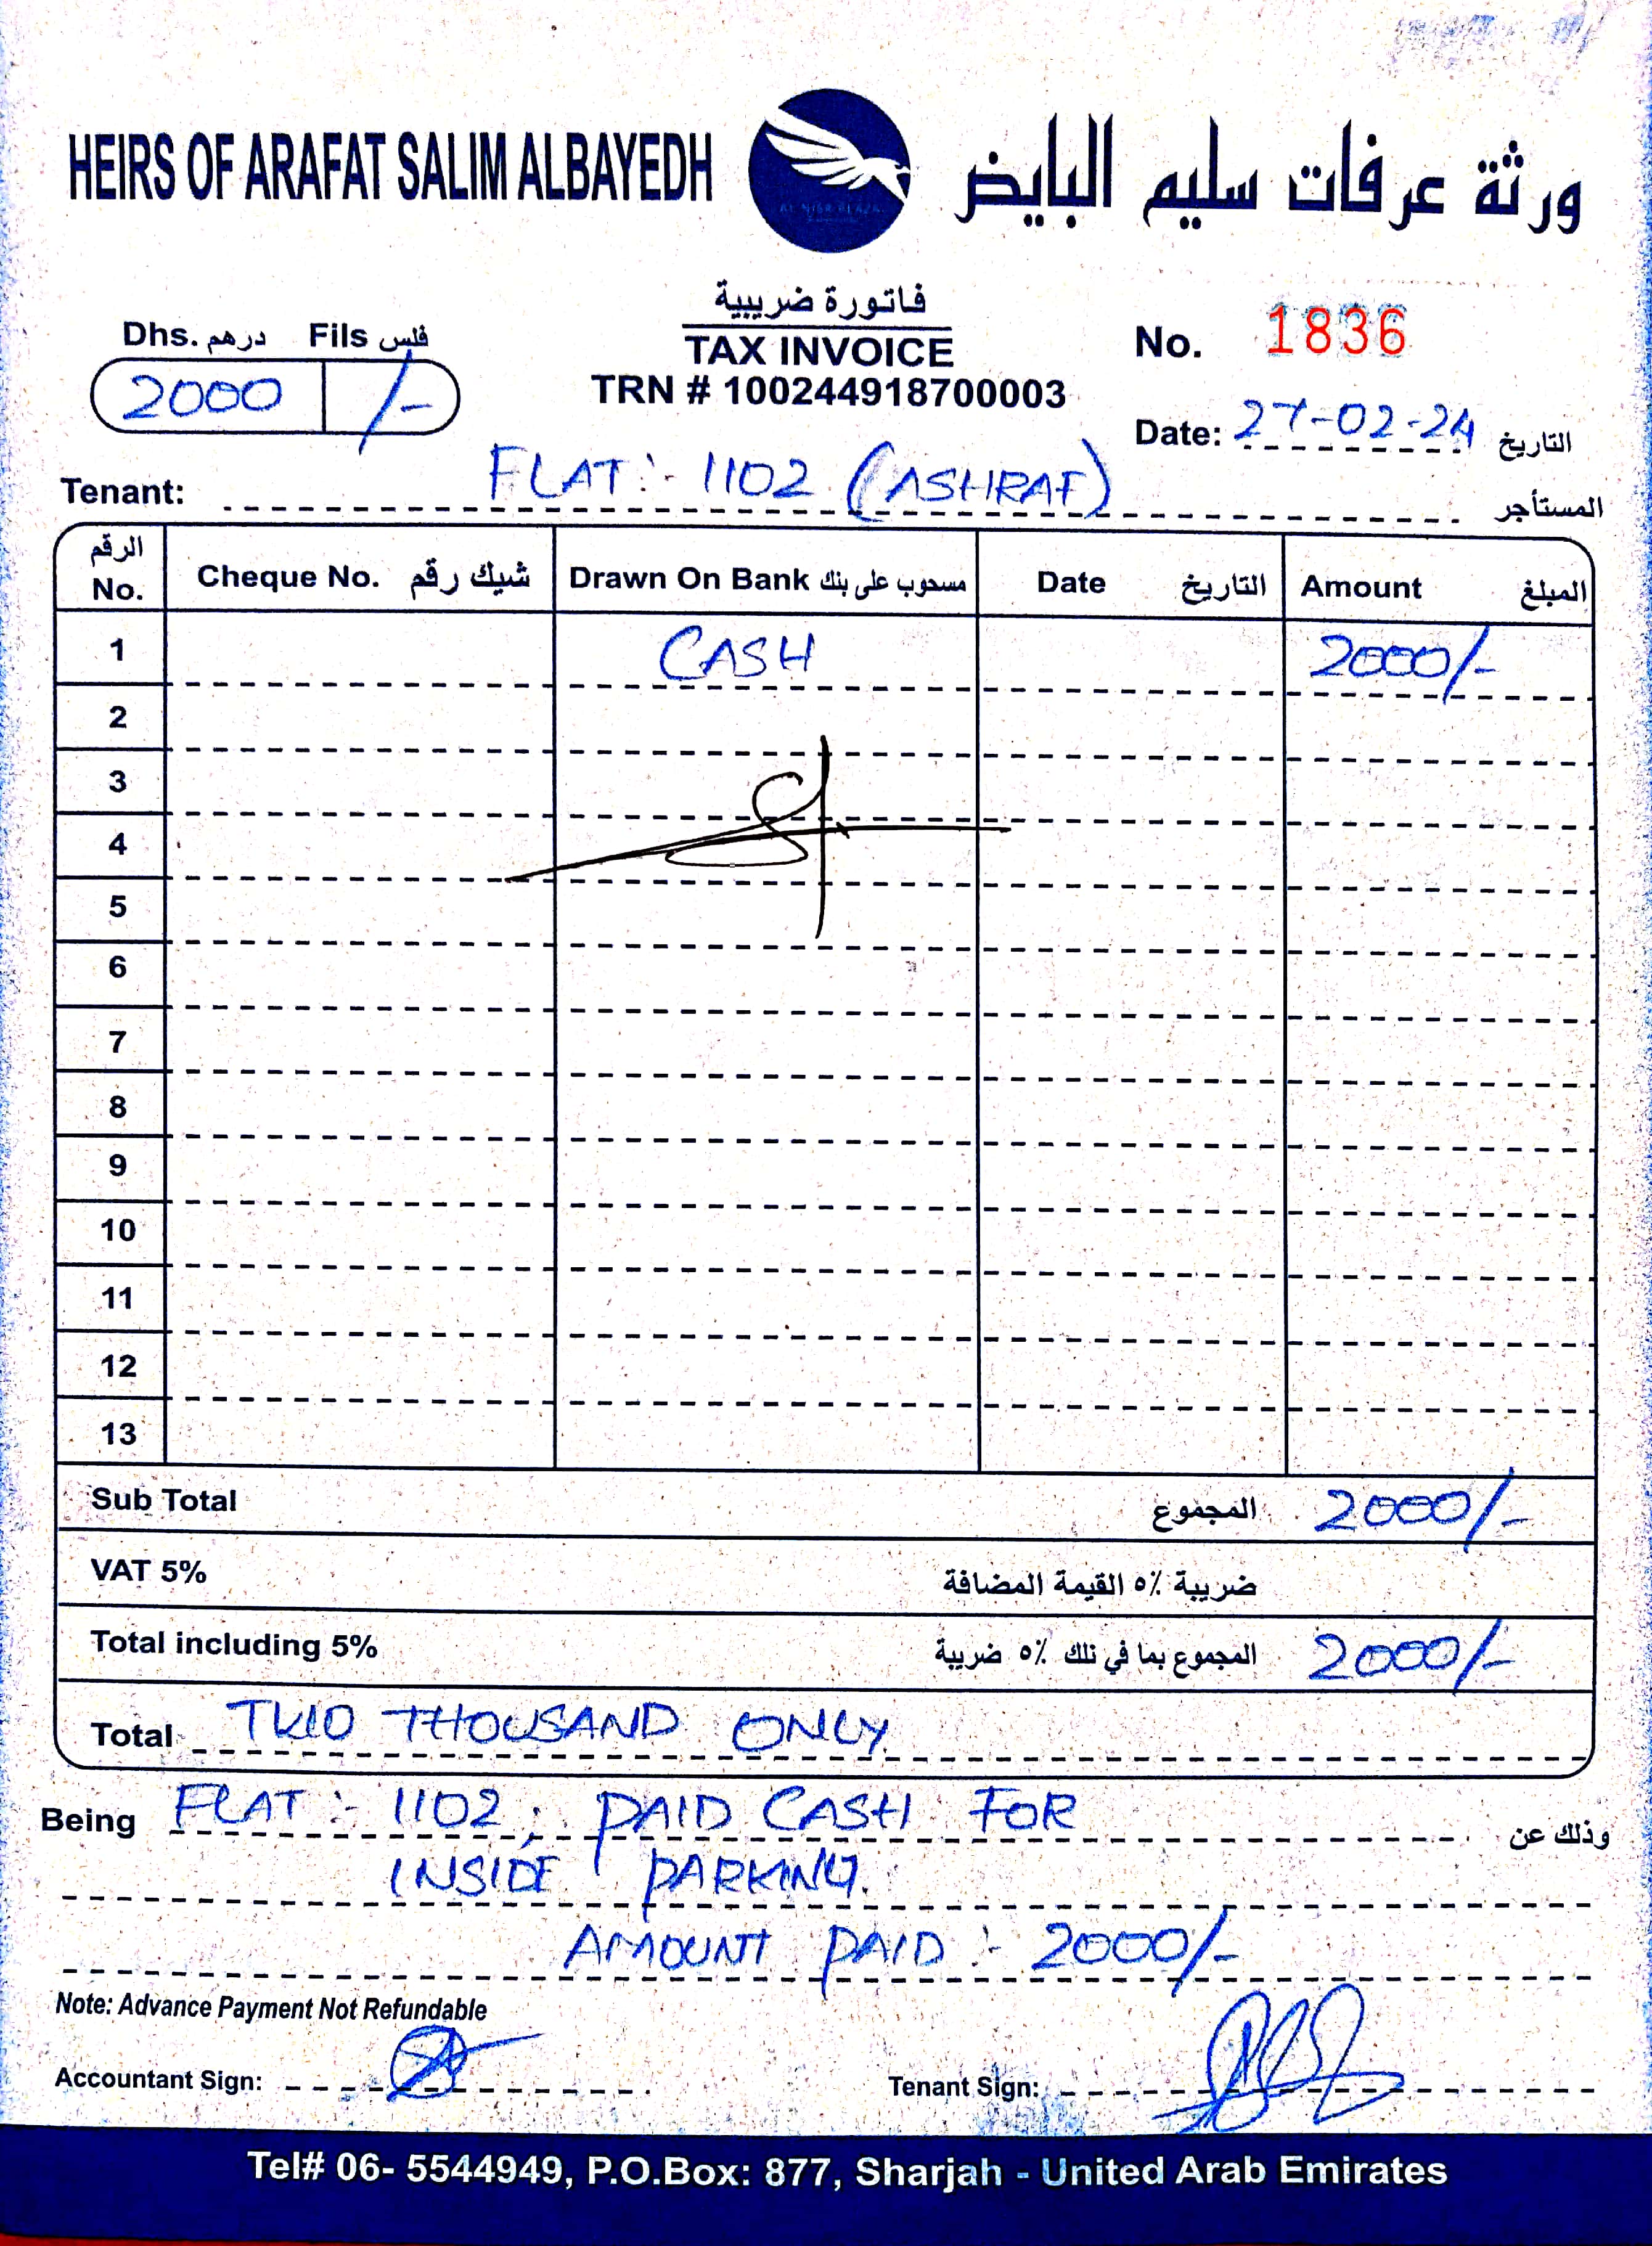 HEIRS OF ARAFAT SALIM ALBAYEDH
ورثة عرفات سليم البايض
AL NISR PLAZA
فاتورة ضريبية
TAX INVOICE
TRN # 100244918700003
Dhs. درهم Fils فلس
2000 /-
No. 1836
Date: 27-02-24 التاريخ
Tenant: FLAT:- 1102 (ASHRAF) المستأجر
الرقم No. Cheque No. شيك رقم Drawn On Bank مسحوب على بنك Date التاريخ Amount المبلغ
1 CASH 2000/-
2
3
4
5
6
7
8
9
10
11
12
13
Sub Total المجموع 2000/-
VAT 5% ضريبة ٥٪ القيمة المضافة
Total including 5% المجموع بما في ذلك ٥٪ ضريبة 2000/-
Total TWO THOUSAND ONLY
Being FLAT :- 1102, PAID CASH FOR وذلك عن
INSIDE PARKING.
AMOUNT PAID :- 2000/-
Note: Advance Payment Not Refundable
Accountant Sign: Tenant Sign:
Tel# 06- 5544949, P.O.Box: 877, Sharjah - United Arab Emirates